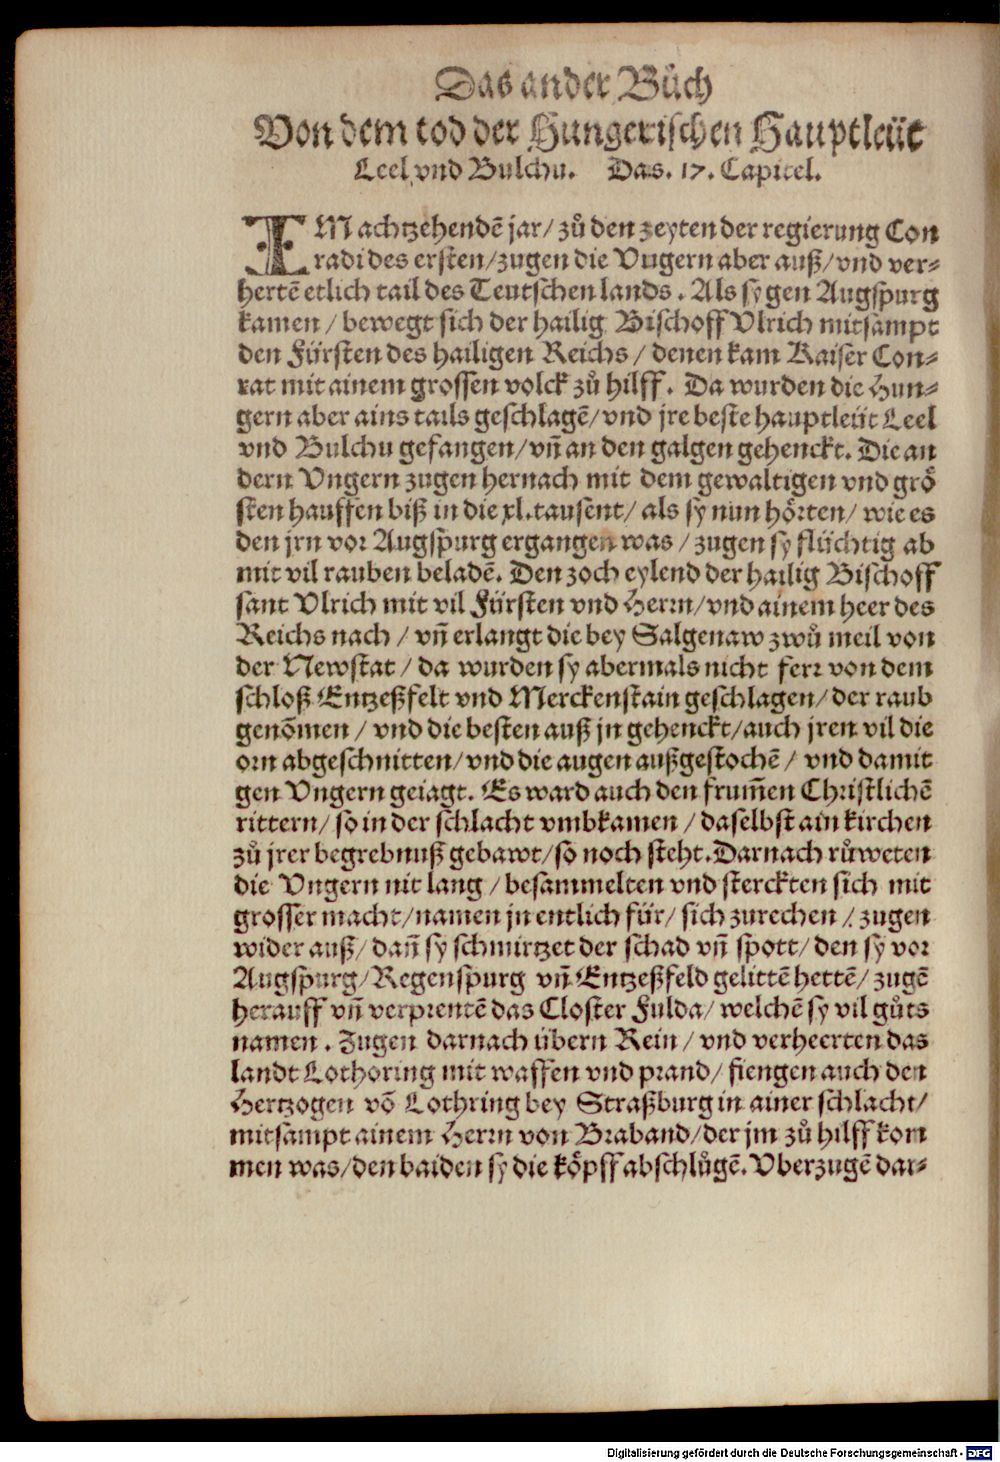 Das ander Bůch
Von dem tod der Hungerischen Hauptleüt
Leel vnd Bulchu. Das. 17. Capitel.
IM achtzehendẽ jar/ zů den zeyten der regierung Con
radi des ersten/ zugen die Vngern aber auß/ vnd ver-
hertẽ etlich tail des Teutschen lands. Als sy gen Augspurg
kamen / bewegt sich der hailig Bischoff Vlrich mitsampt
den Fürsten des hailigen Reichs / denen kam Kaiser Con-
rat mit ainem grossen volck zů hilff. Da wurden die Hun-
gern aber ains tails geschlagẽ/ vnd jre beste hauptleüt Leel
vnd Bulchu gefangen/ vñ an den galgen gehenckt. Die an
dern Vngern zugen hernach mit dem gewaltigen vnd grö
sten hauffen biß in die xl. tausent/ als sy nun hörten/ wie es
den jrn vor Augspurg ergangen was / zugen sy flüchtig ab
mit vil rauben beladẽ. Den zoch eylend der hailig Bischoff
sant Vlrich mit vil Fürsten vnd Herrn/ vnd ainem heer des
Reichs nach / vñ erlangt die bey Salgenaw zwů meil von
der Newstat / da wurden sy abermals nicht ferr von dem
schloß Entzeßfelt vnd Merckenstain geschlagen/ der raub
genõmen / vnd die besten auß jn gehenckt/ auch jren vil die
orn abgeschnitten/ vnd die augen außgestochẽ / vnd damit
gen Vngern geiagt. Es ward auch den frum̃en Christlichẽ
rittern/ so in der schlacht vmbkamen / daselbst ain kirchen
zů jrer begrebnuß gebawt/ so noch steht. Darnach růweten
die Vngern nit lang / besammelten vnd sterckten sich mit
grosser macht/ namen jn entlich für/ sich zurechen / zugen
wider auß/ dañ sy schmirtzet der schad vñ spott/ den sy vor
Augspurg/ Regenspurg vñ Entzeßfeld gelittẽ hettẽ/ zugẽ
herauff vñ verprentẽ das Closter Fulda/ welchẽ sy vil gůts
namen. Zugen darnach übern Rein / vnd verheerten das
landt Lothoring mit waffen vnd prand/ fiengen auch den
Hertzogen võ Lothring bey Straßburg in ainer schlacht/
mitsampt ainem Herrn von Braband/ der jm zů hilff kom
men was/ den baiden sy die köpff abschlůgẽ. Vberzugẽ dar-
Digitalisierung gefördert durch die Deutsche Forschungsgemeinschaft - DFG